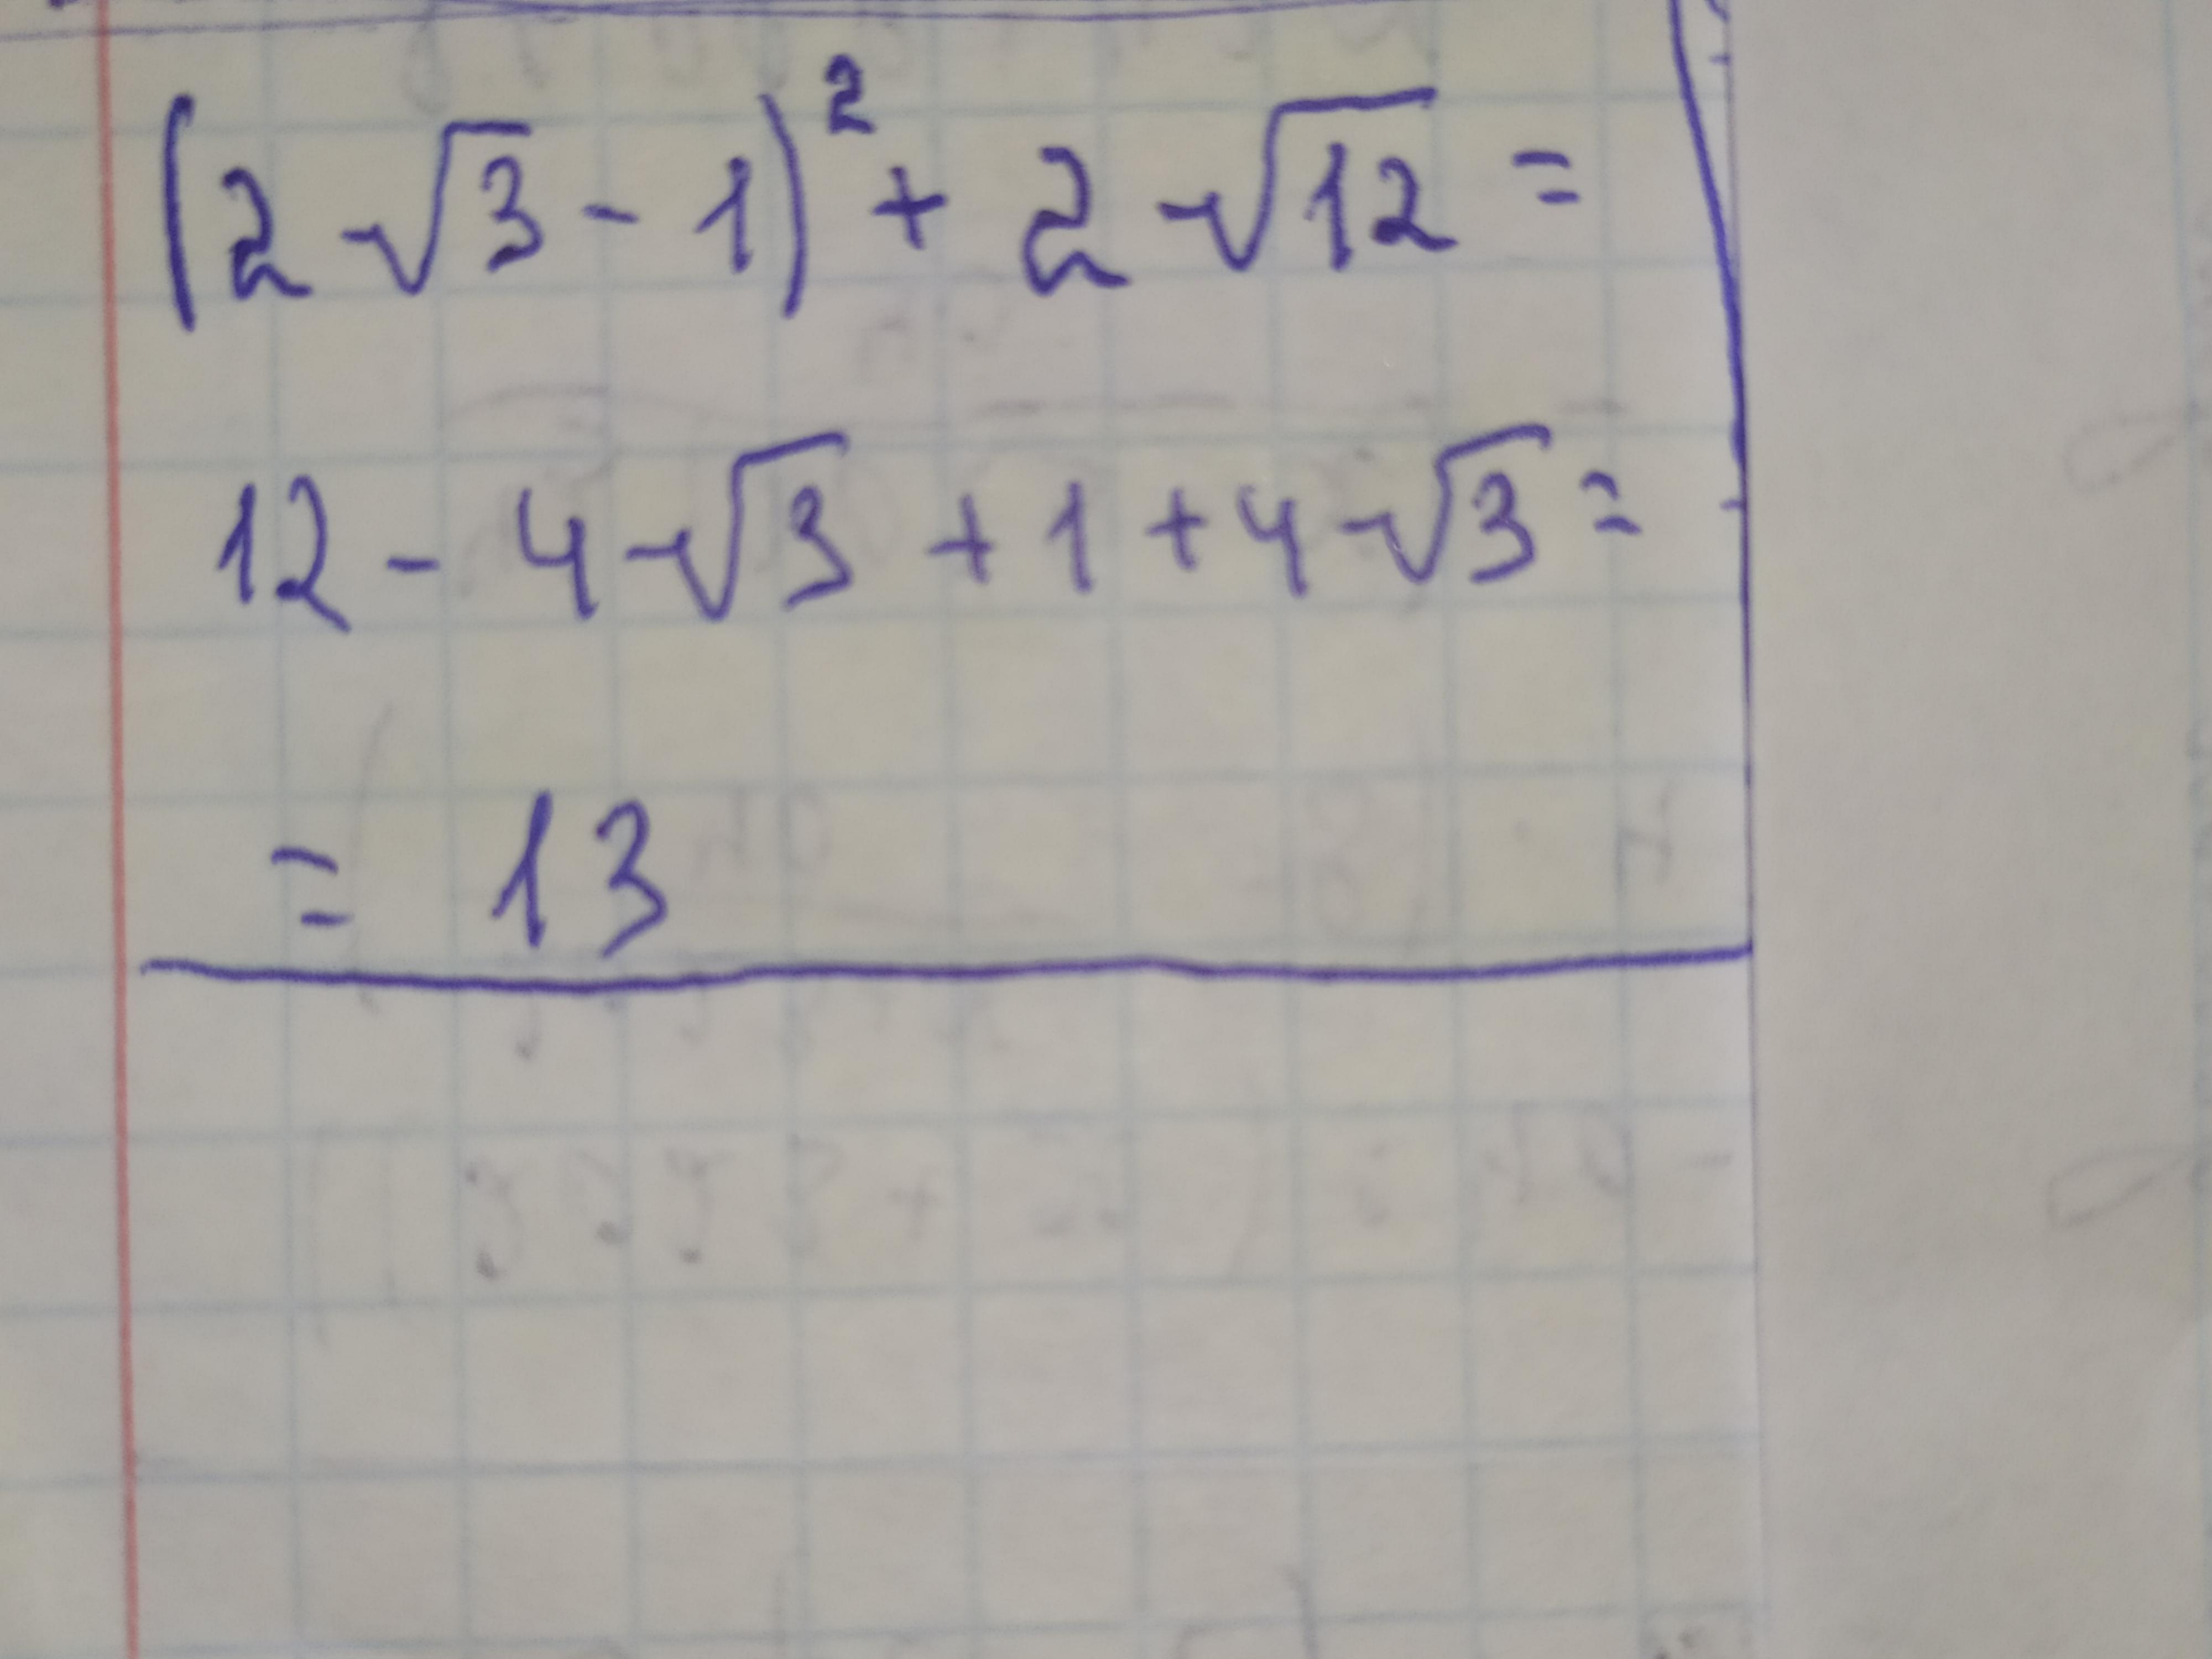 (2√3 - 1)² + 2√12 =
12 - 4√3 + 1 + 4√3 =
= 13